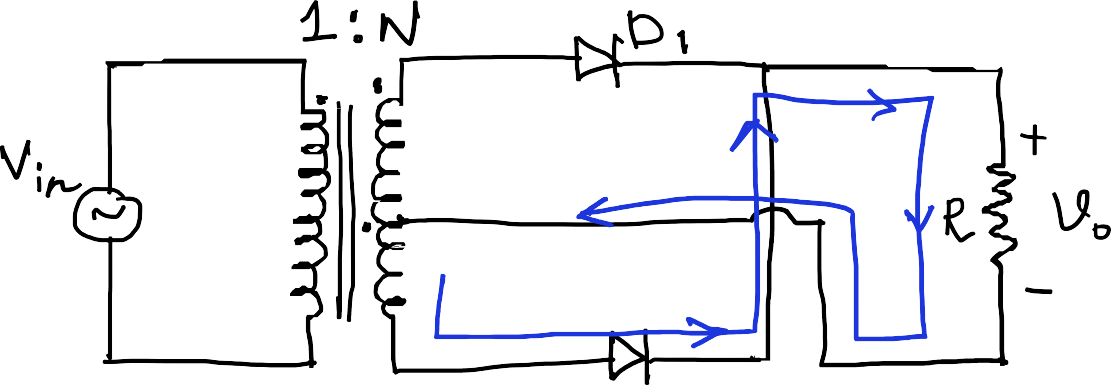 1:N
D1
Vin
+
R
Vo
-